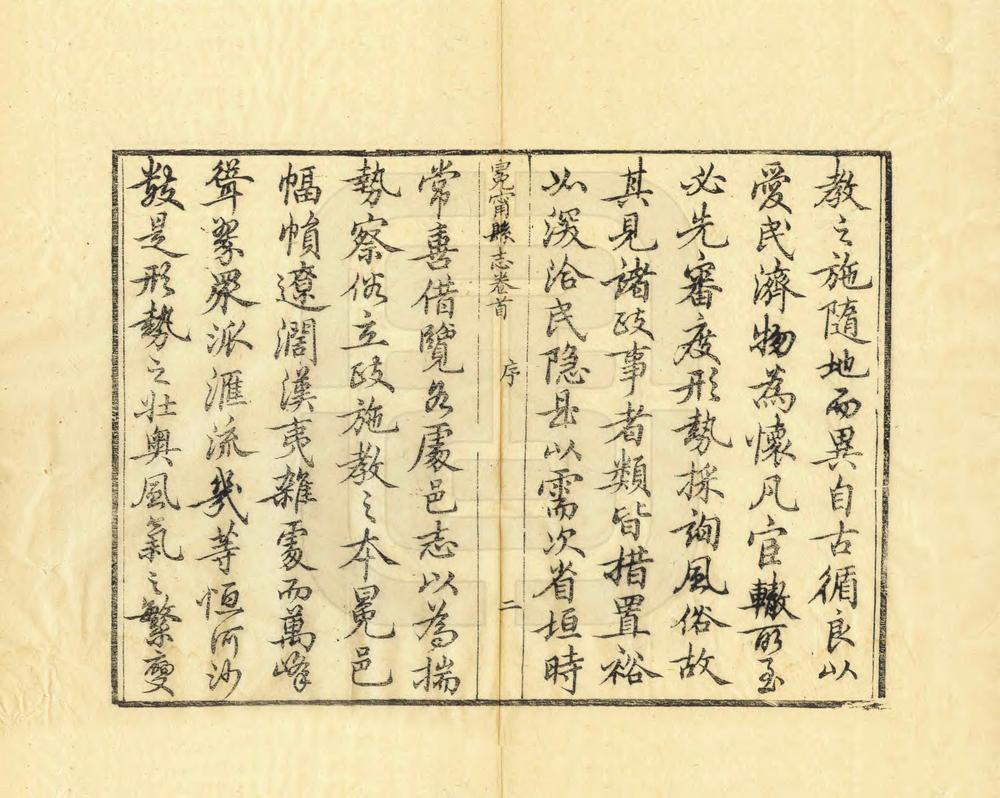 教之施隨地而異自古循良以
愛民濟物為懷凡官轍所至
必先審度形勢採詢風俗故
其見諸政事者類皆措置裕
如深洽民隐昷以需次省垣時
冕甯縣志卷首 序 二
常喜借覽各處邑志以為揣
勢察俗立政施教之本冕邑
幅幀遼濶漢夷雜處而萬峰
聳翠眾派滙流幾等恒河沙
數是形勢之壯奥風氣之繁變